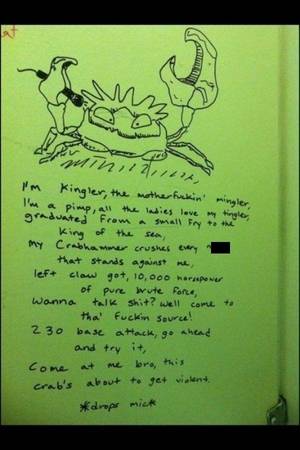 at
I'm Kingler, the motherfuckin' mingler,
I'm a pimp, all the ladies love my tingler,
graduated from a small fry to the
King of the sea,
my Crabhammer crushes every
that stands against me,
left claw got, 10,000 horsepower
of pure brute force,
Wanna talk shit? Well come to
tha' fuckin source!
230 base attack, go ahead
and try it,
Come at me bro, this
crab's about to get violent.
*drops mic*